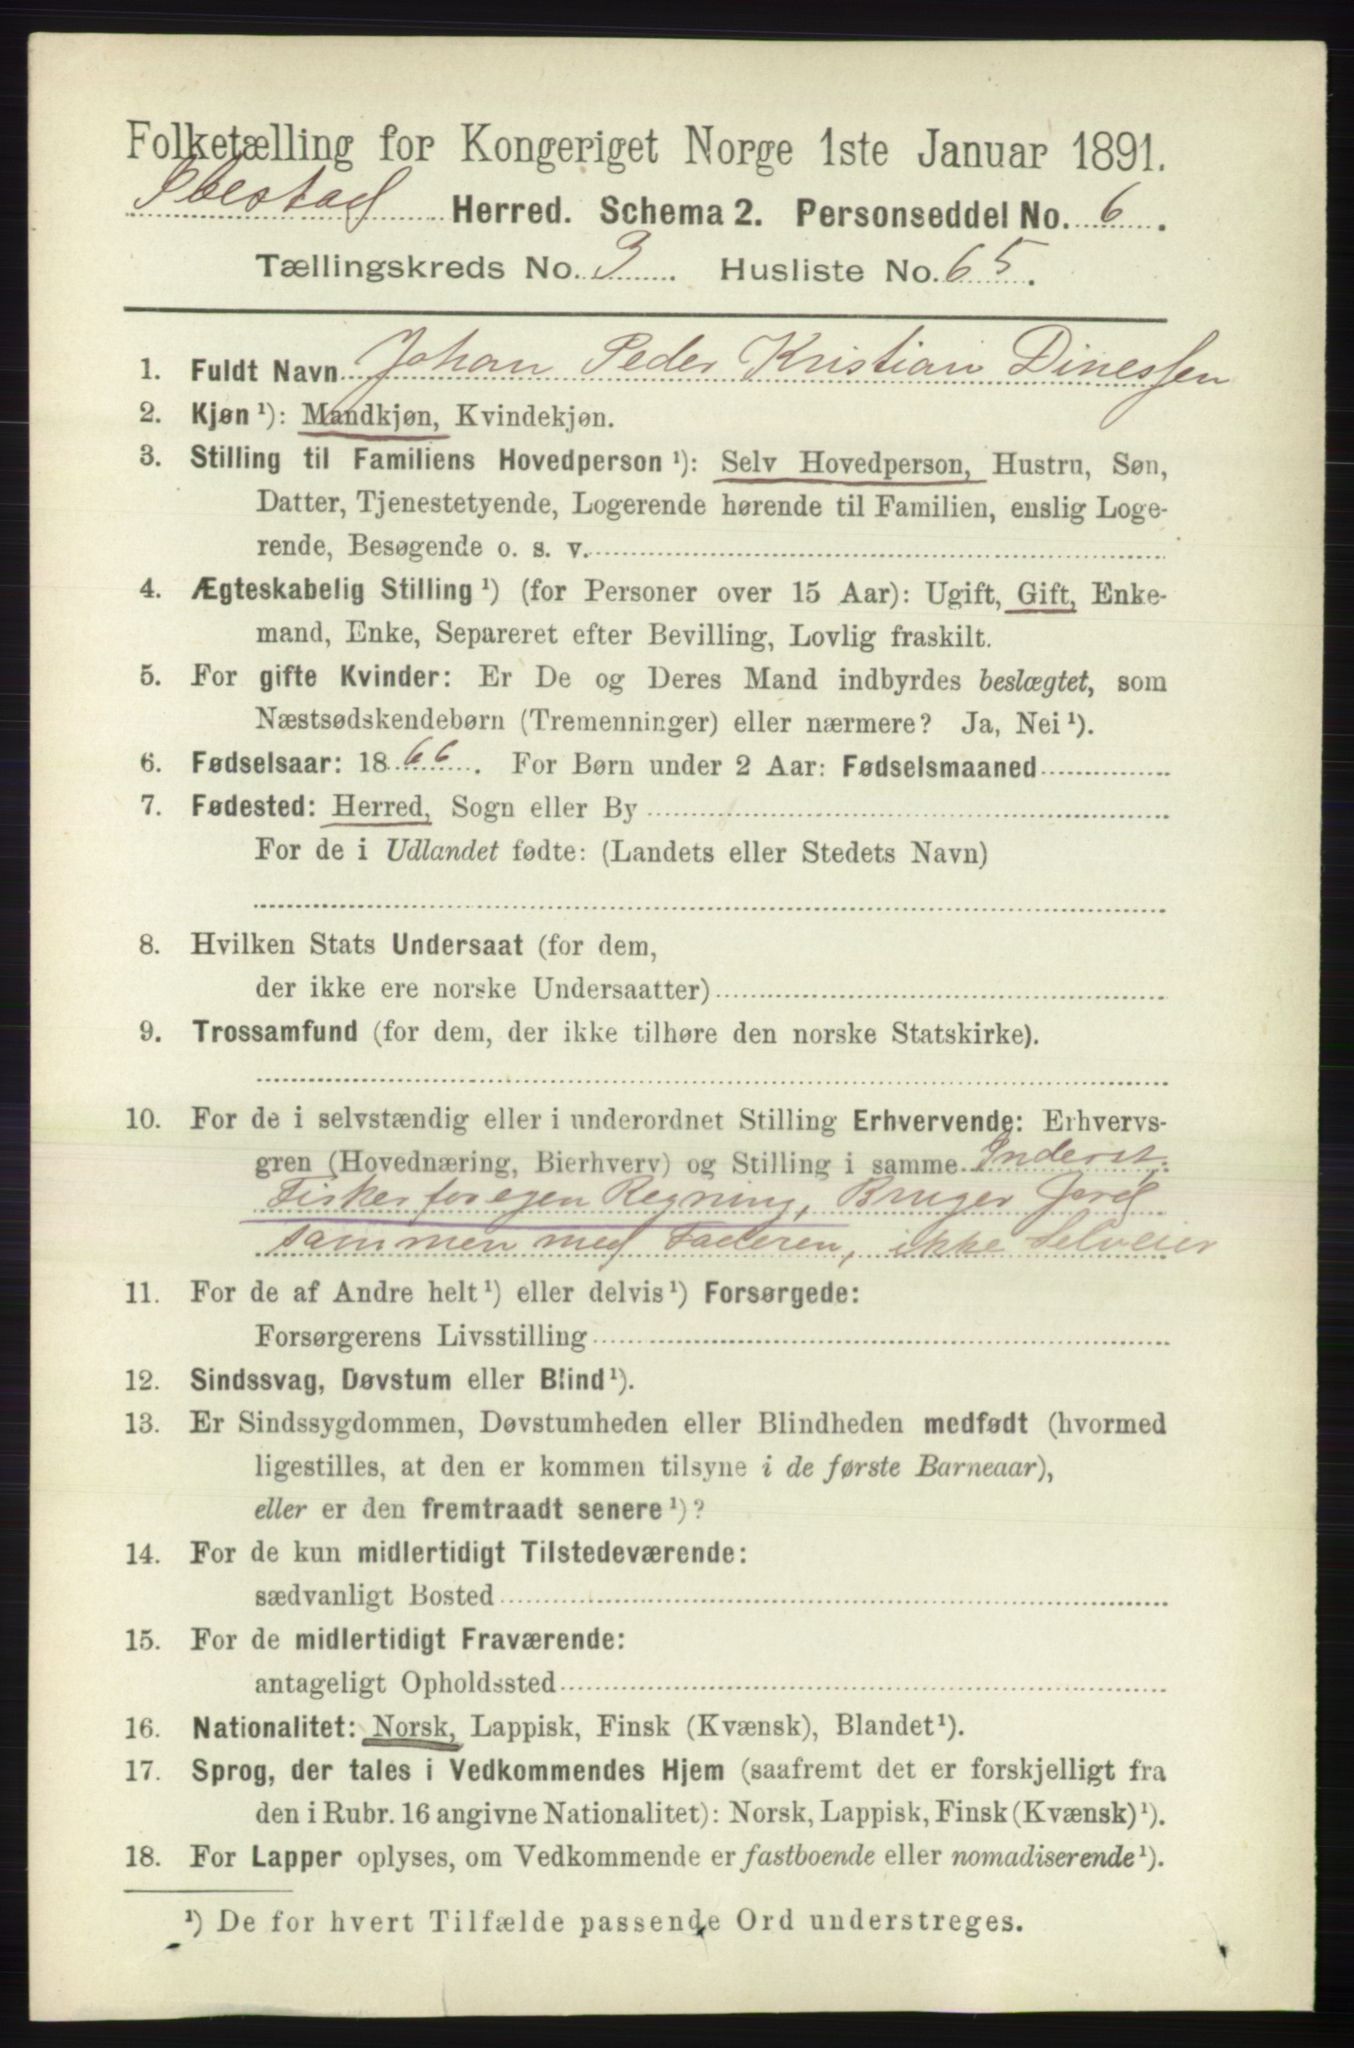 Folketælling for Kongeriget Norge 1ste Januar 1891.
Ibestad Herred. Schema 2. Personseddel No. 6.
Tællingskreds No. 3. Husliste No. 65.
1. Fuldt Navn Johan Peder Kristian Dinessen
2. Kjøn ¹): Mandkjøn, Kvindekjøn.
3. Stilling til Familiens Hovedperson ¹): Selv Hovedperson, Hustru, Søn,
Datter, Tjenestetyende, Logerende hørende til Familien, enslig Loge-
rende, Besøgende o. s. v.
4. Ægteskabelig Stilling ¹) (for Personer over 15 Aar): Ugift, Gift, Enke-
mand, Enke, Separeret efter Bevilling, Lovlig fraskilt.
5. For gifte Kvinder: Er De og Deres Mand indbyrdes beslægtet, som
Næstsødskendebørn (Tremenninger) eller nærmere? Ja, Nei ¹).
6. Fødselsaar: 1866. For Børn under 2 Aar: Fødselsmaaned
7. Fødested: Herred, Sogn eller By
For de i Udlandet fødte: (Landets eller Stedets Navn)
8. Hvilken Stats Undersaat (for dem,
der ikke ere norske Undersaatter)
9. Trossamfund (for dem, der ikke tilhøre den norske Statskirke).
10. For de i selvstændig eller i underordnet Stilling Erhvervende: Erhvervs-
gren (Hovednæring, Bierhverv) og Stilling i samme Inderst,
Fisker for egen Regning, Bruger Jord
sammen med Faderen, ikke Selveier
11. For de af Andre helt ¹) eller delvis ¹) Forsørgede:
Forsørgerens Livsstilling
12. Sindssvag, Døvstum eller Blind ¹).
13. Er Sindssygdommen, Døvstumheden eller Blindheden medfødt (hvormed
ligestilles, at den er kommen tilsyne i de første Barneaar),
eller er den fremtraadt senere ¹)?
14. For de kun midlertidigt Tilstedeværende:
sædvanligt Bosted
15. For de midlertidigt Fraværende:
antageligt Opholdssted
16. Nationalitet: Norsk, Lappisk, Finsk (Kvænsk), Blandet ¹).
17. Sprog, der tales i Vedkommendes Hjem (saafremt det er forskjelligt fra
den i Rubr. 16 angivne Nationalitet): Norsk, Lappisk, Finsk (Kvænsk) ¹).
18. For Lapper oplyses, om Vedkommende er fastboende eller nomadiserende ¹).
¹) De for hvert Tilfælde passende Ord understreges.